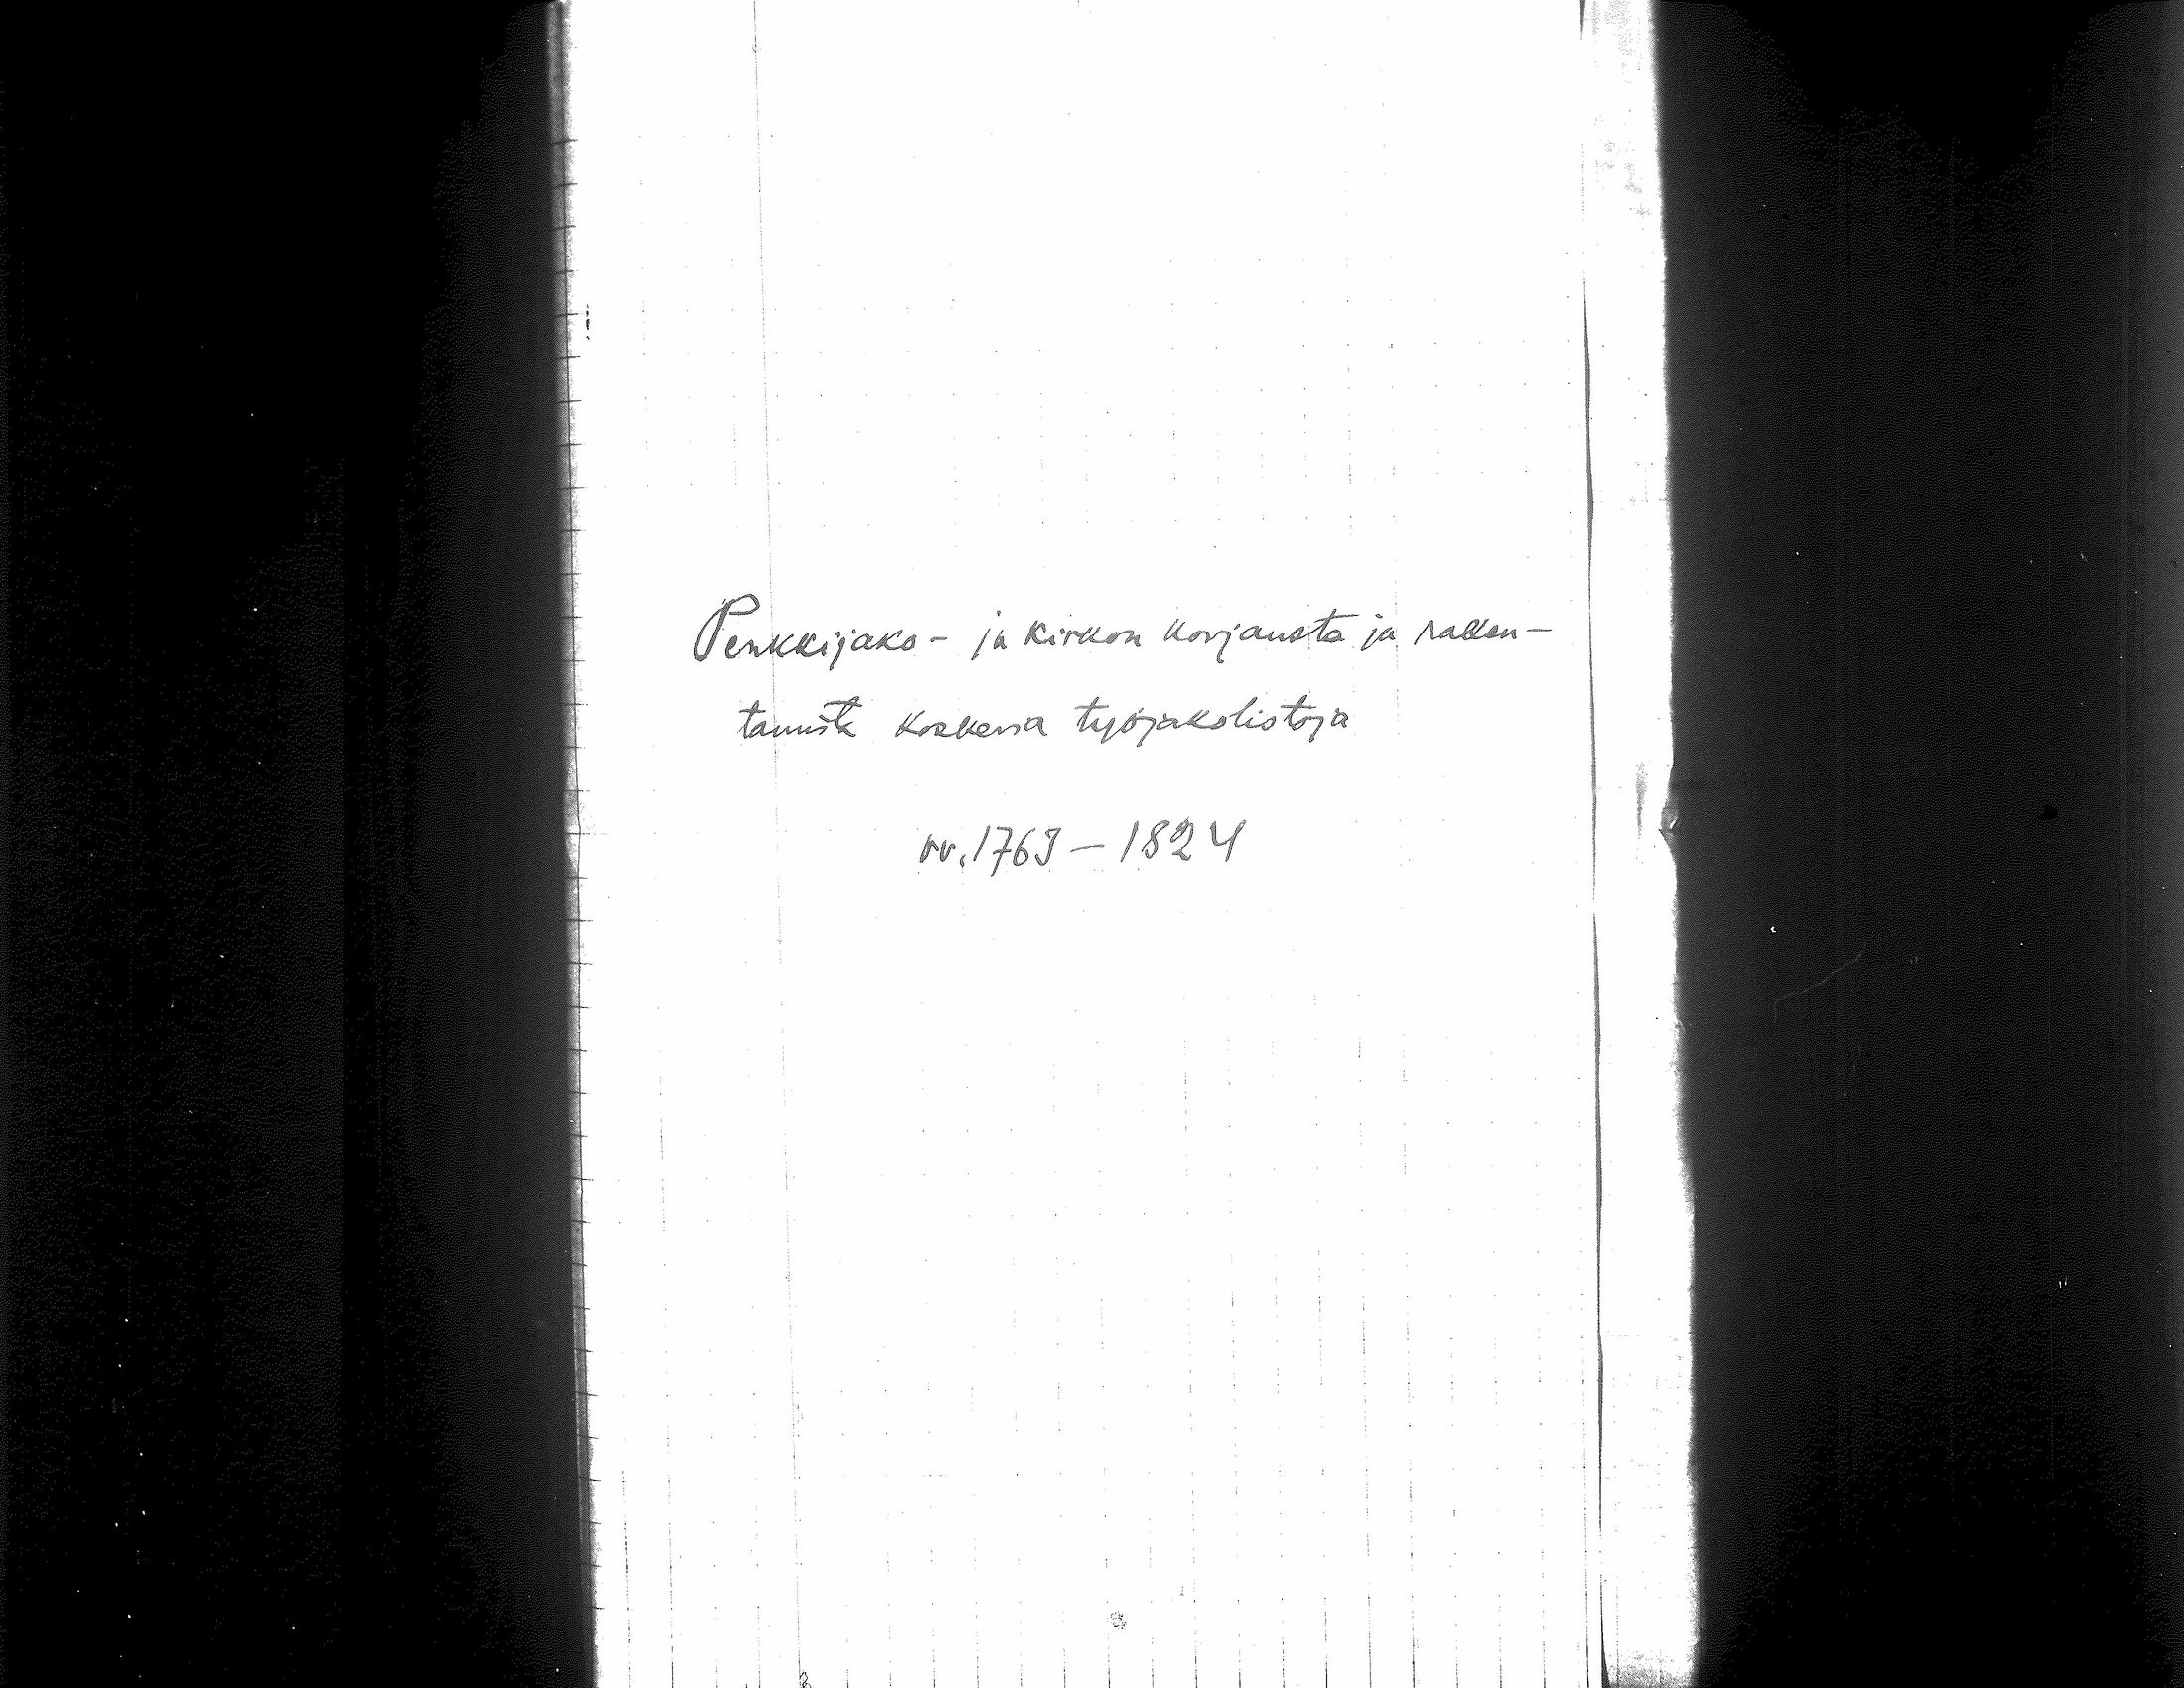 Penkkijako- ja kirkon korjausta ja raken-
tamista koskevia työjakolistoja
vv. 1763 – 1824